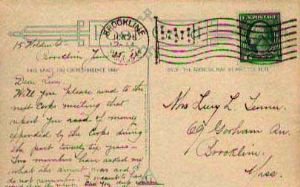 BROOKLINE
15 Holden St.
Brookline, Jan
THIS SPACE FOR CORRESPONDENCE ONLY
Dear
Will you please send to the
next Corps meeting that
report you read of money
expended by the Corps during
the past twenty five years -
Two members have asked me
what the amount was and I
do not remember. I meant to
Mrs Lucy L.
69 Gorham Av.
Brookline
Mass.